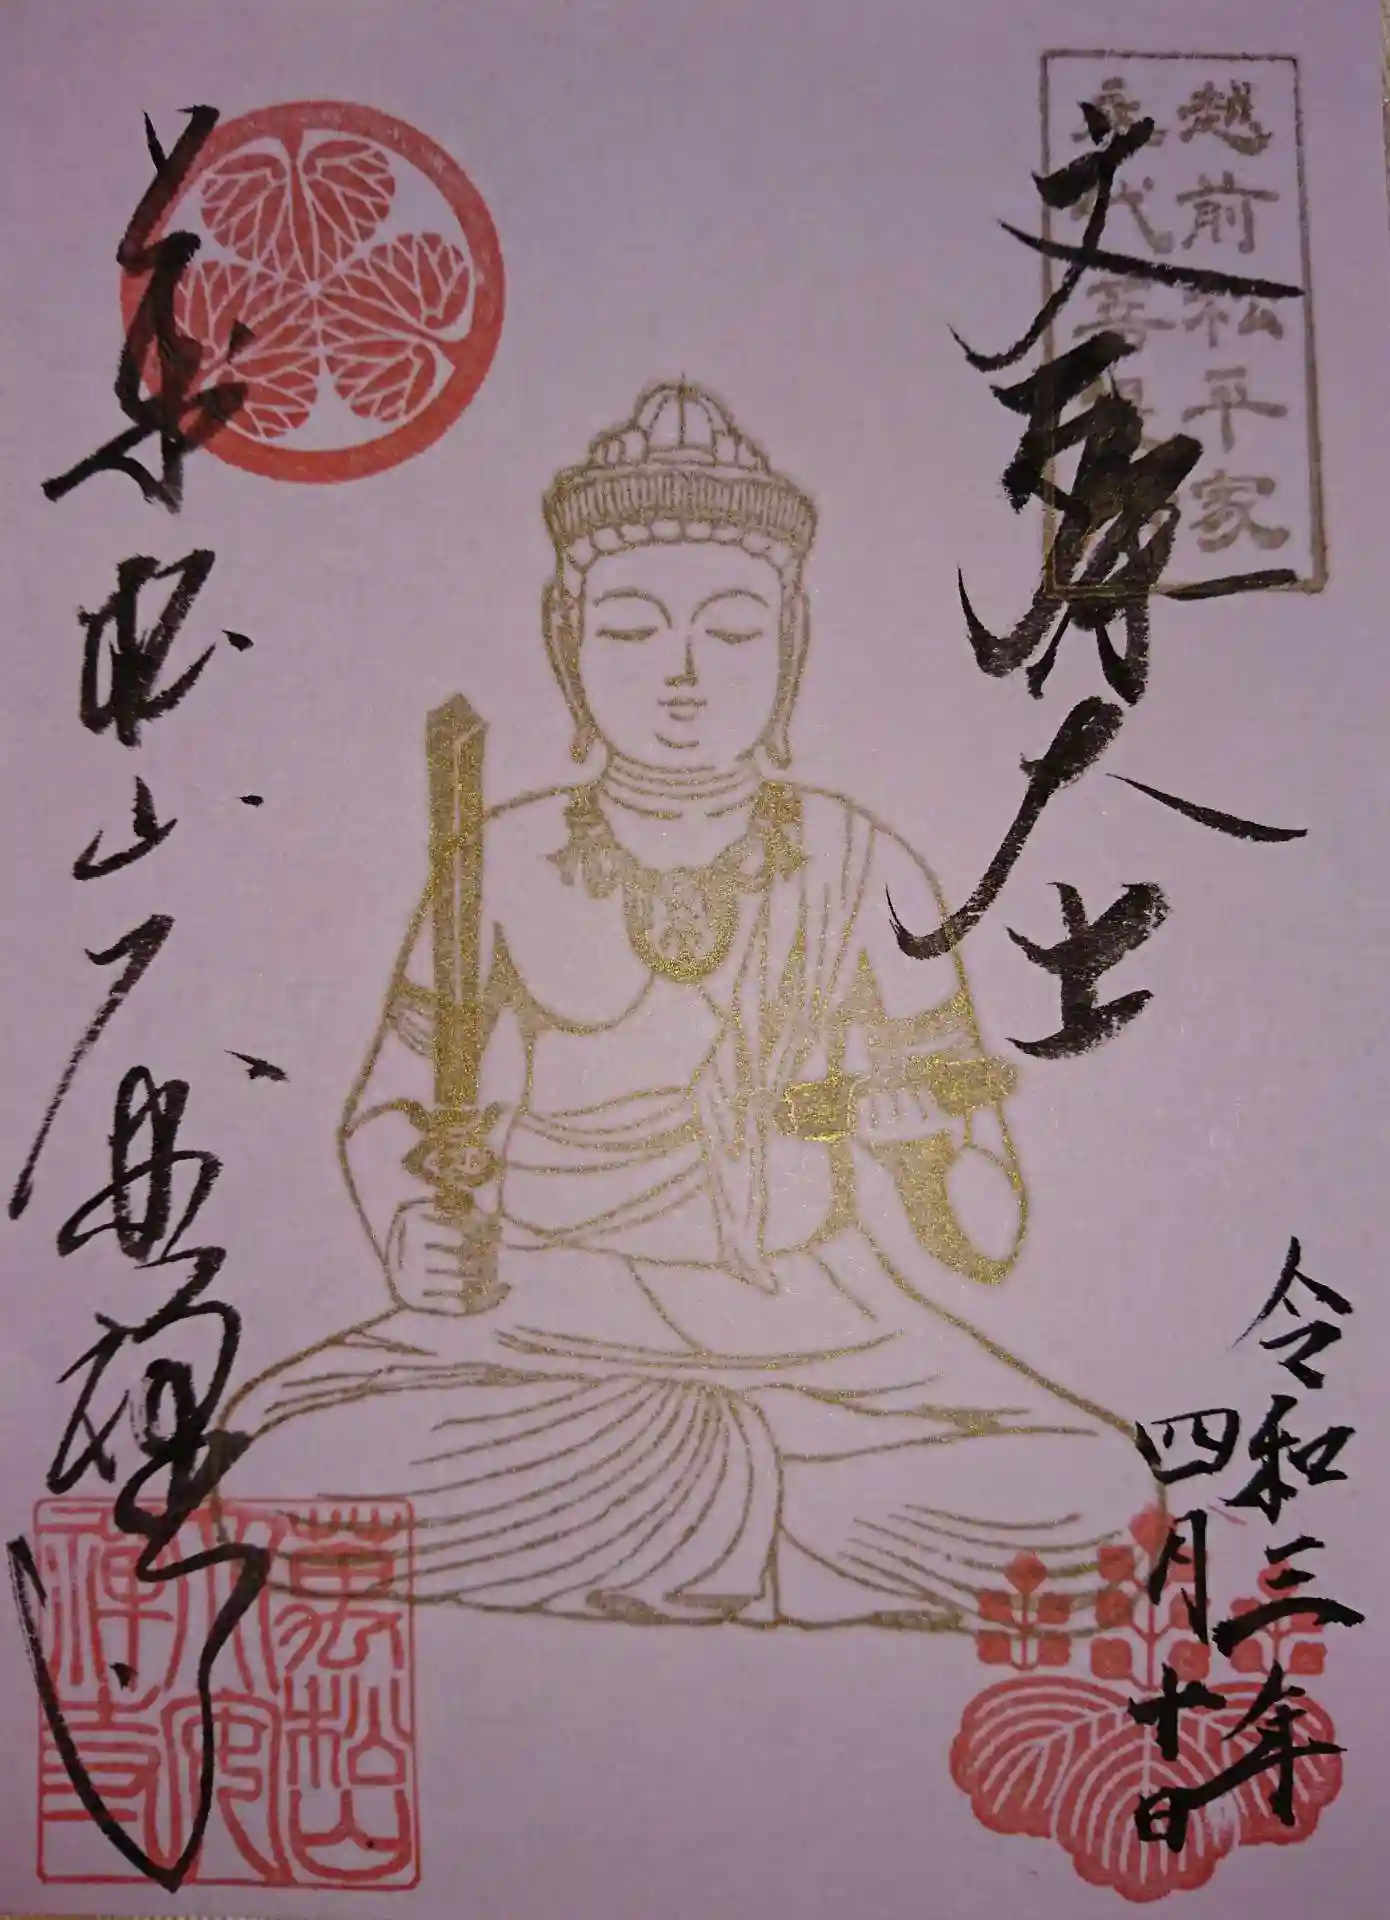 越前松平家
永代菩提所
文殊大士
令和三年
四月十日
萬松山
大安禅寺
萬松山
大安
禅寺